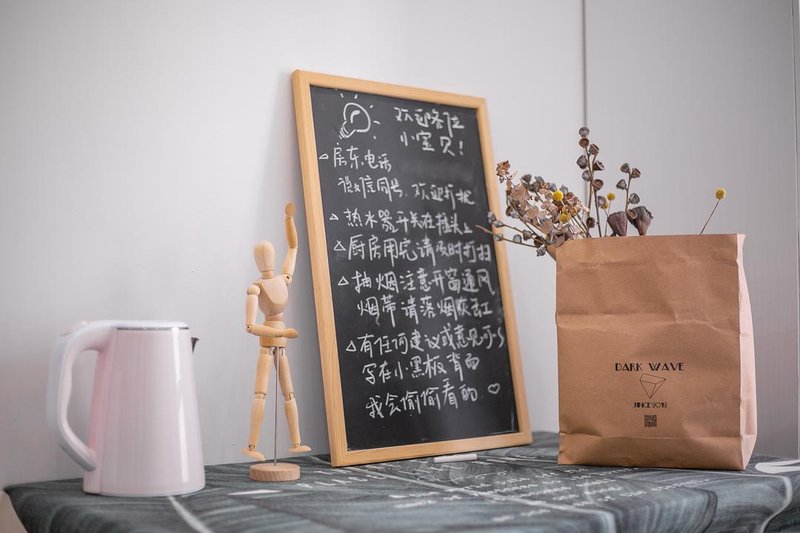 欢迎各位
小宝贝!
△房东电话
微信同号.欢迎打扰
△热水器开关在插头上
△厨房用完请及时打扫
△抽烟注意开窗通风
烟蒂请落烟灰缸
△有任何建议或意见可以
写在小黑板背面
我会偷偷看的.♡
DARK WAVE
SINCE 2012